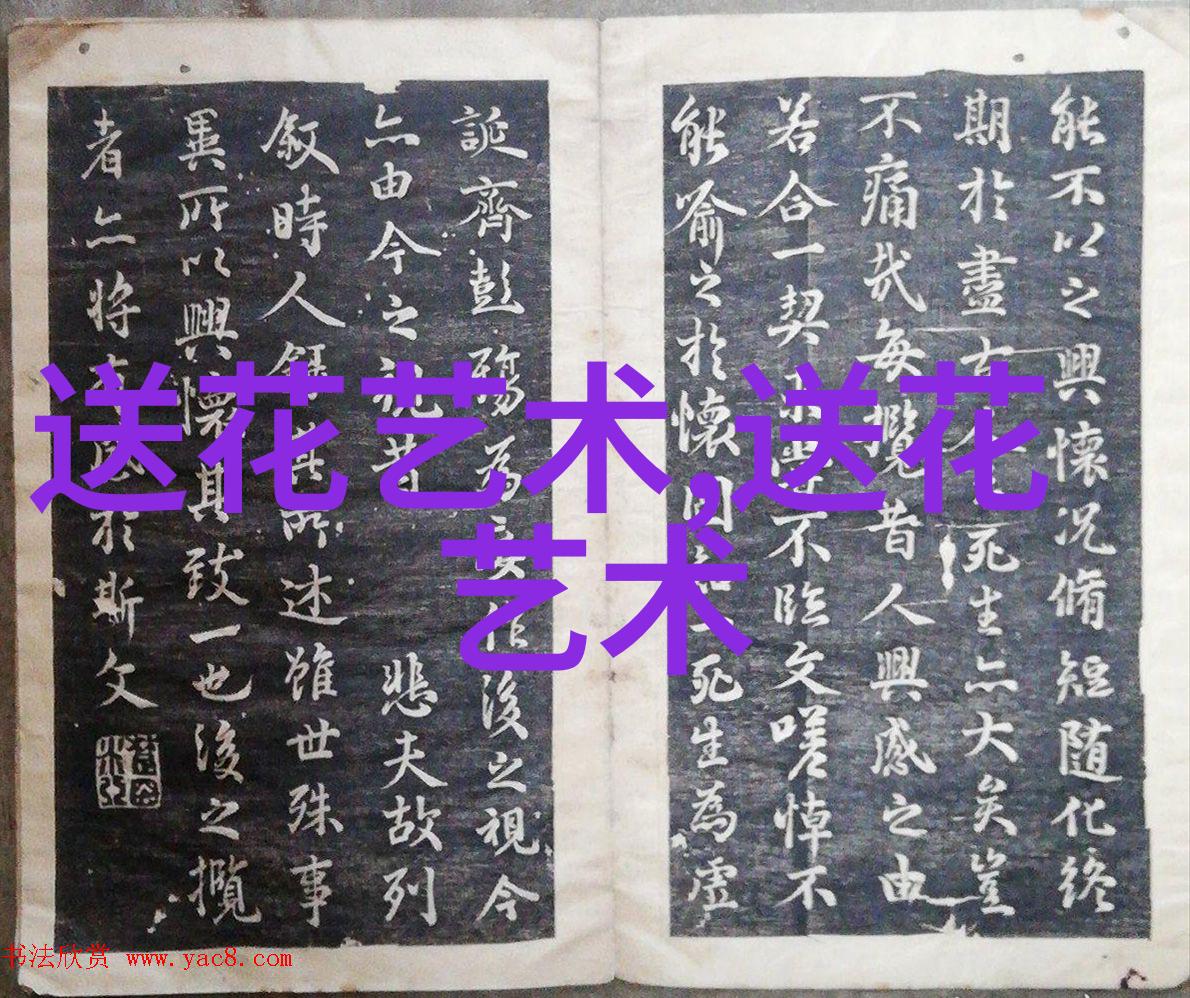 能不以之興懷況脩短随化終
期於盡死生亦大矣豈
不痛哉每攬昔人興感之由
若合一契不臨文嗟悼不
能喻之於懷固死生為虛
誕齊彭殤為妄作後之視今
亦由今之視昔悲夫故列
叙時人録其所述雖世殊事
異所以興懷其致一也後之攬
者亦将於斯文
送花艺术,送花
艺术
书法欣赏 www.yac8.com